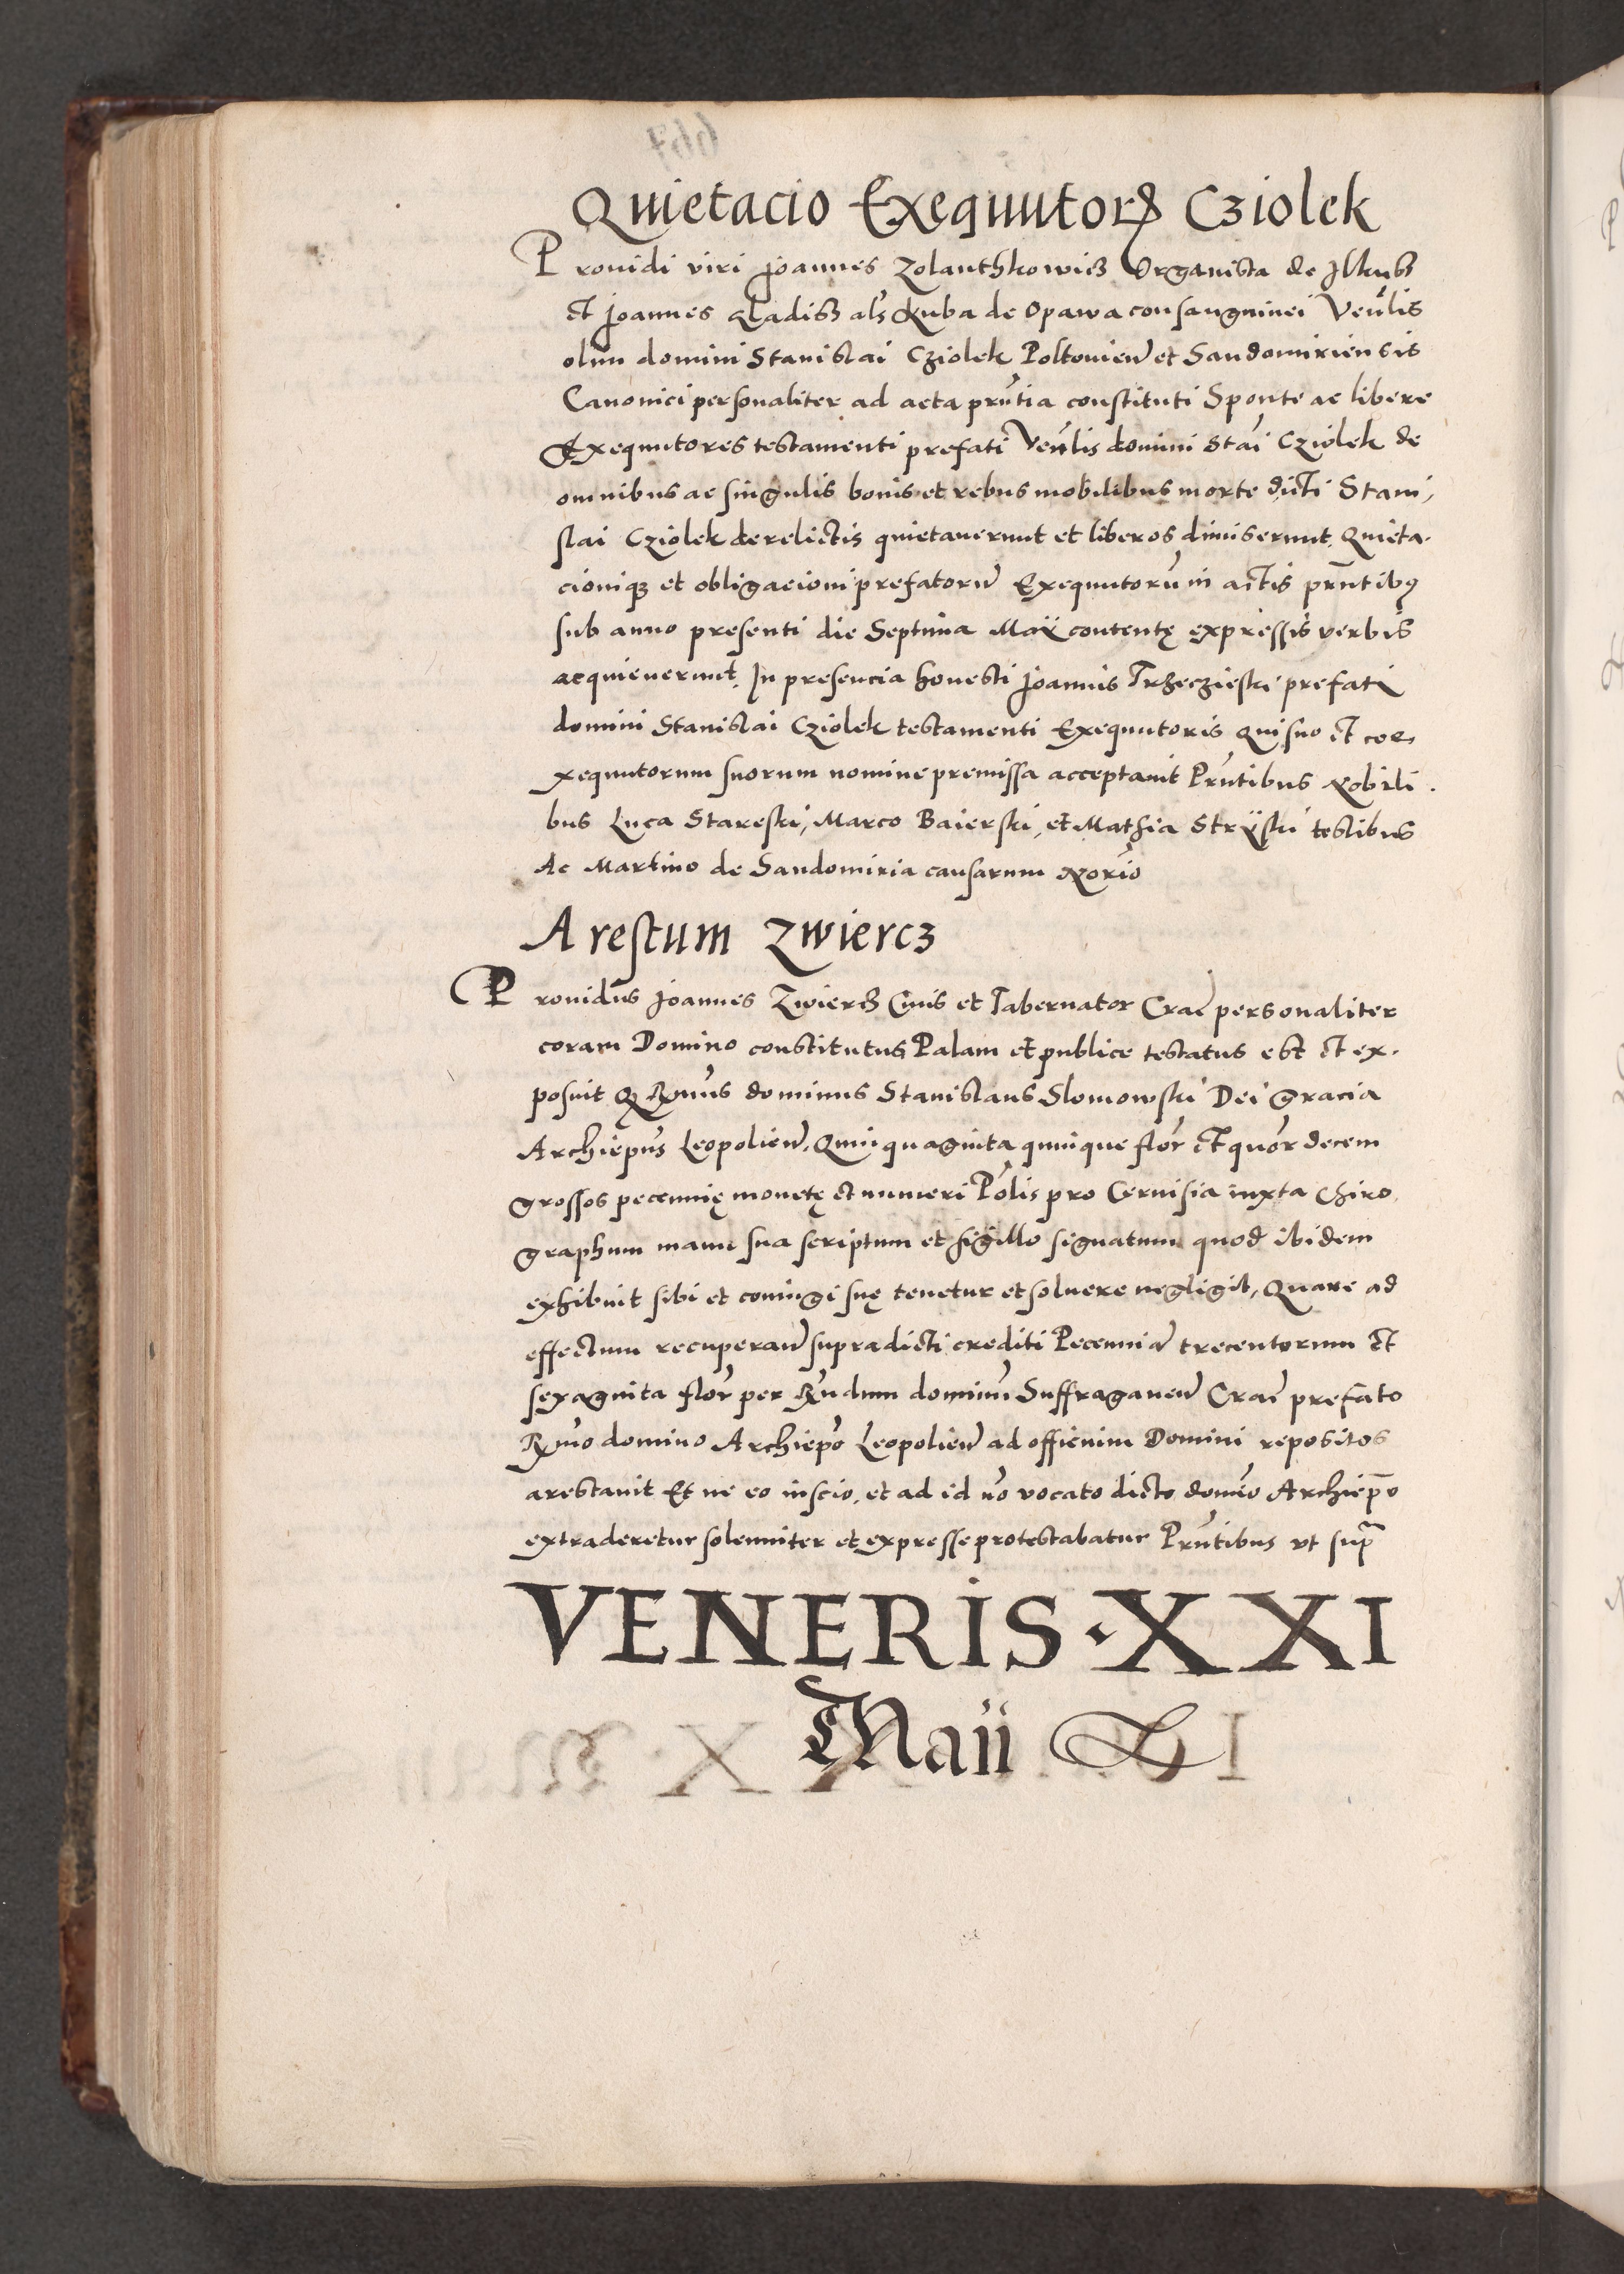 Quietacio Exequutorꝝ Cziolek
Prouidi viri Joannes Zolanthkowicz Organista de Ilkusz
et Joannes Gladisz als Kuba de Opawa consanguinei Venlis
olim domini Stanislai Cziolek Poltouien et Sandomiriensis
Canonici personaliter ad acta prntia constituti Sponte ac libere
Exequutores testamenti prefati Venlis domini Stai Cziolek de
omnibus ac singulis bonis et rebus mobilibus morte dicti Stani,
slai Cziolek derelictis quietauerunt et liberos dimiserunt, Quieta-
cioniqꝫ et obligacioni prefatoru Exequutoru in actis prntibꝯ
sub anno presenti die Septima Maÿ contentę expressis verbis
acquieuerunt. In presencia honesti Joannis Trzeczieski prefati
domini Stanislai Cziolek testamenti Exequutoris qui suo et coe-
xequutorum suorum nomine premissa acceptauit Prntibus Nobili-
bus Luca Stareski, Marco Baierski, et Mathia Strÿski testibus
Ac Martino de Sandomiria causarum Norio
Arestum Zwiercz
Prouidus Joannes Zwiercz Ciuis et Tabernator Crac personaliter
coram Domino constitutus Palam et publice testatus est et ex-
posuit Qꝫ Rmus dominus Stanislaus Slomowski Dei gracia
Archiepus Leopolien, Quinquaginta quinque flor et quor decem
grossos pecunię monetę et numeri Polis pro Ceruisia iuxta Chiro
graphum manu sua scriptum et sigillo signatum quod ibidem
exhibuit sibi et coniugi suę tenetur et soluere negligit, Quare ad
effectum recuperan supradicti crediti Pecunia trecentorum et
sexaginta flor per Rndum dominum Suffraganeu Crac prefato
Rmo domino Archiepo Leopolien ad officium Domini repositos
arestauit Et ne eo inscio, et ad id no vocato dicto domino Archiepo
extraderetur solenniter et expresse protestabatur Prntibus vt supra
VENERIS · XXI
Maii